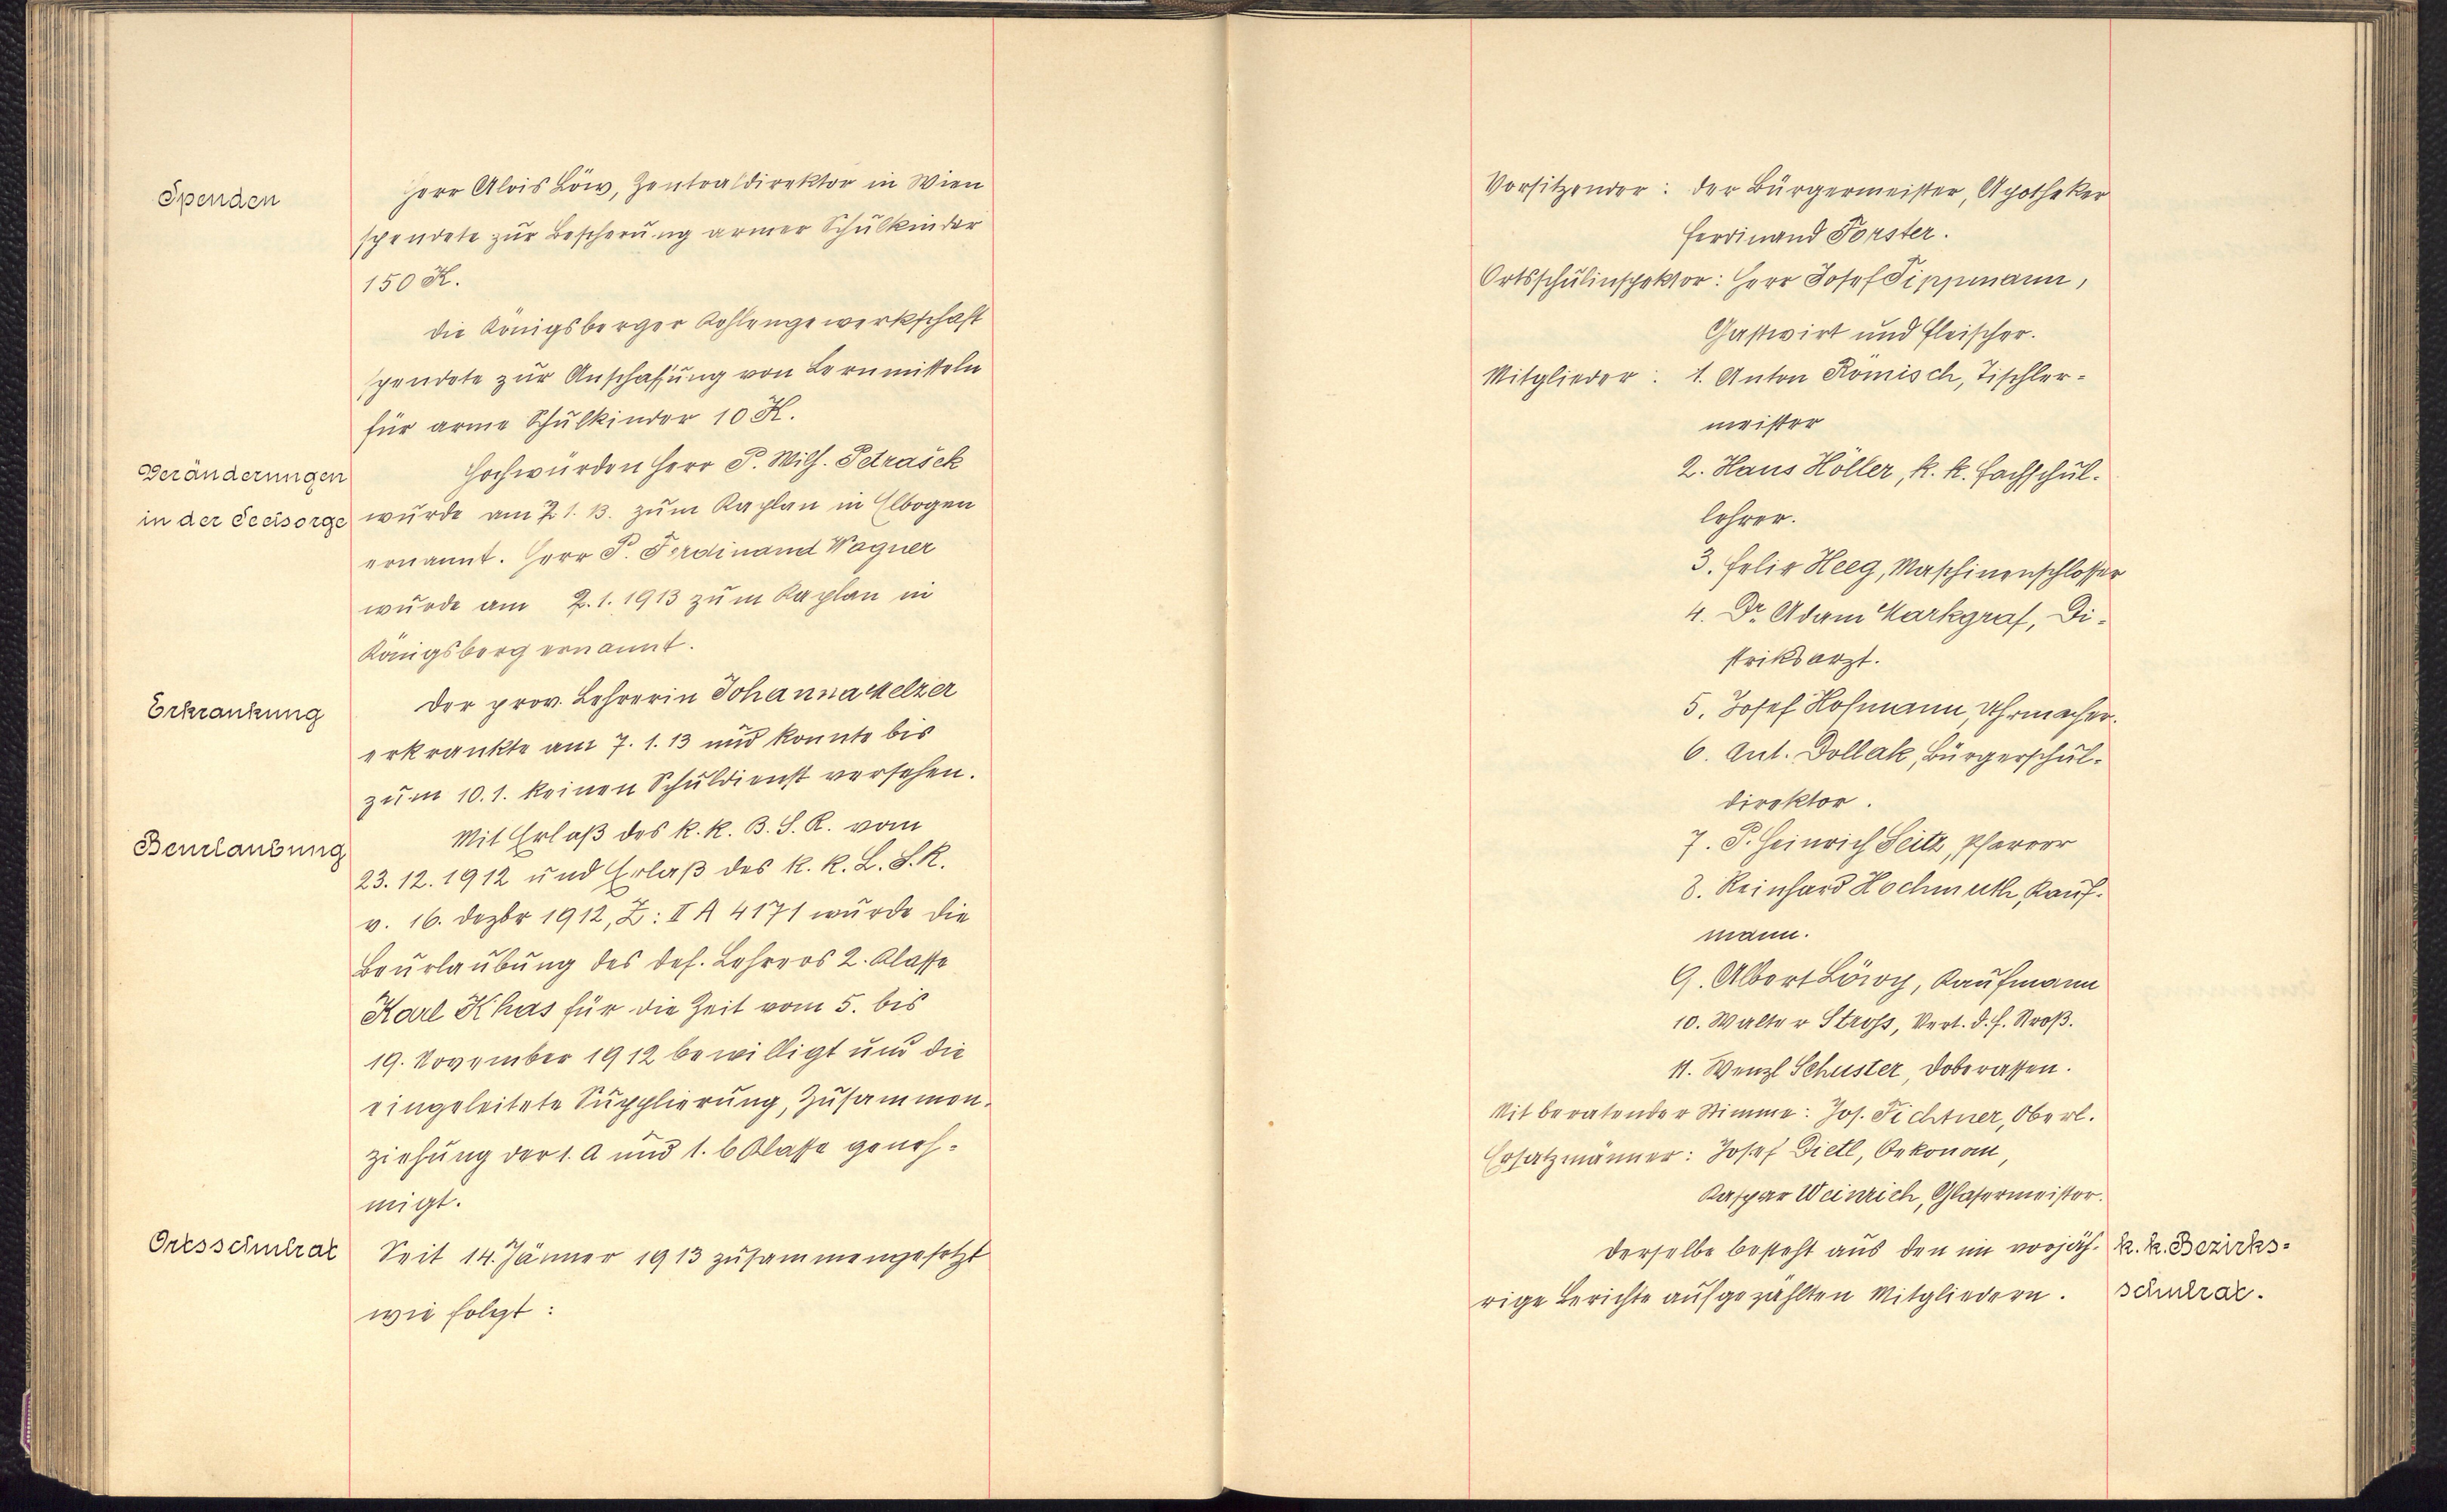 Spenden
Herr Alois Löw, Zentraldirektor in Wien
spendete zur Bescherung armer Schulkinder
150 K.
Die Königsberger Kohlengewerkschaft
spendete zur Anschaffung von Lernmitteln
für arme Schulkinder 10 K.
Veränderungen
in der Seelsorge
Hochwürden Herr P. Wilh. Petrašek
wurde am 2 1. 13. zum Kaplan in Elbogen
ernannt. Herr P. Ferdinand Wagner
wurde am 2. 1. 1913 zum Kaplan in
Königsberg ernannt.
Erkrankung
Der prov. Lehrerin Johanna Melzer
erkrankte am 7. 1. 13 und konnte bis
zum 10. 1. keinen Schuldienst versehen.
Beurlaubung
Mit Erlaß des k. k. B. S. R. vom
23. 12. 1912 und Erlaß des k. k. L. S. R.
v. 16. Dezbr 1912, Z: II A 4171 wurde die
Beurlaubung des def. Lehrers 2. Klasse
Karl Khas für die Zeit vom 5. bis
19. November 1912 bewilligt und die
eingeleitete Supplierung, Zusammen-
ziehung der 1. a und 1. b Klasse geneh-
migt.
Ortsschulrat
Seit 14. Jänner 1913 zusammengesetzt
wie folgt:
Vorsitzender: der Bürgermeister, Apotheker
Ferdinand Forster.
Ortsschulinspektor: Herr Josef Tippmann,
Gastwirt und Fleischer.
Mitglieder: 1. Anton Römisch, Tischler-
meister
2. Hans Höller, k. k. Fachschul-
lehrer.
3. Felix Heeg, Maschinenschlosser
4. Dr. Adam Markgraf, Di-
striktsarzt.
5. Josef Hofmann, Uhrmacher.
6. Ant. Dollak, Bürgerschul-
direktor.
7. P. Heinrich Seitz, Pfarrer
8. Reinhard Hochmuth, Kauf-
mann.
9. Albert Löwy, Kaufmann
10. Walter Stross, Vert. d. F. Stroß.
11. Wenzl Schuster, Doberassen.
Mit beratender Stimme: Jos. Fichtner, Oberl.
Ersatzmänner: Josef Dietl, Oekonom,
Kaspar Weinrich, Glasermeister.
Derselbe besteht aus den im vorjäh-
rige Berichte aufgezählten Mitgliedern.
k. k. Bezirks-
schulrat.